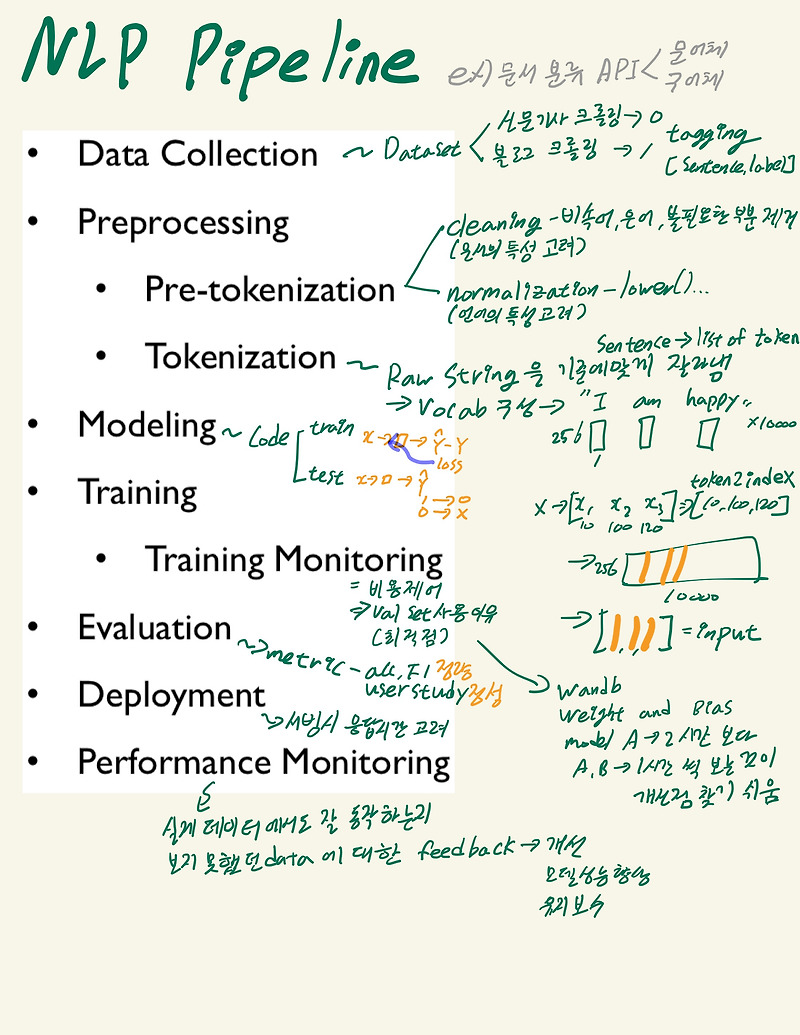 NLP Pipeline
ex) 문서 분류 API < 문어체
구어체
• Data Collection
~ Dataset < 신문기사 크롤링 → 0
블로그 크롤링 → 1
tagging
[sentence, label]
• Preprocessing
cleaning - 비속어, 은어, 불필요한 부분 제거
(문서의 특성 고려)
• Pre-tokenization
normalization - lower()...
(언어의 특성 고려)
• Tokenization
Sentence → list of token
~ Raw String을 기준에맞게 잘라냄
→ Vocab 구성 → "I am happy"
256
1
×10000
• Modeling
~ Code
train x → □ → Ŷ - Y
loss
test x → □ → Ŷ
1 → 0
0 → x
• Training
token2index
X → [x₁ x₂ x₃] ⇒ [10, 100, 120]
10 100 120
• Training Monitoring
= 비용제어
⇒ Val set 사용이유
(최적점)
→ 256
10000
→ [ ] = input
• Evaluation
~> metric - acc, F1 정량
user study 정성
• Deployment
↘ 서빙시 응답시간 고려
wandb
weight and Bias
model A → 2시간 보다
A, B → 1시간 씩 보는 것이
개선점 찾기 쉬움
• Performance Monitoring
실제 데이터에서도 잘 동작하는지
보지 못했던 data에 대한 feedback → 개선
모델성능향상
유지보수